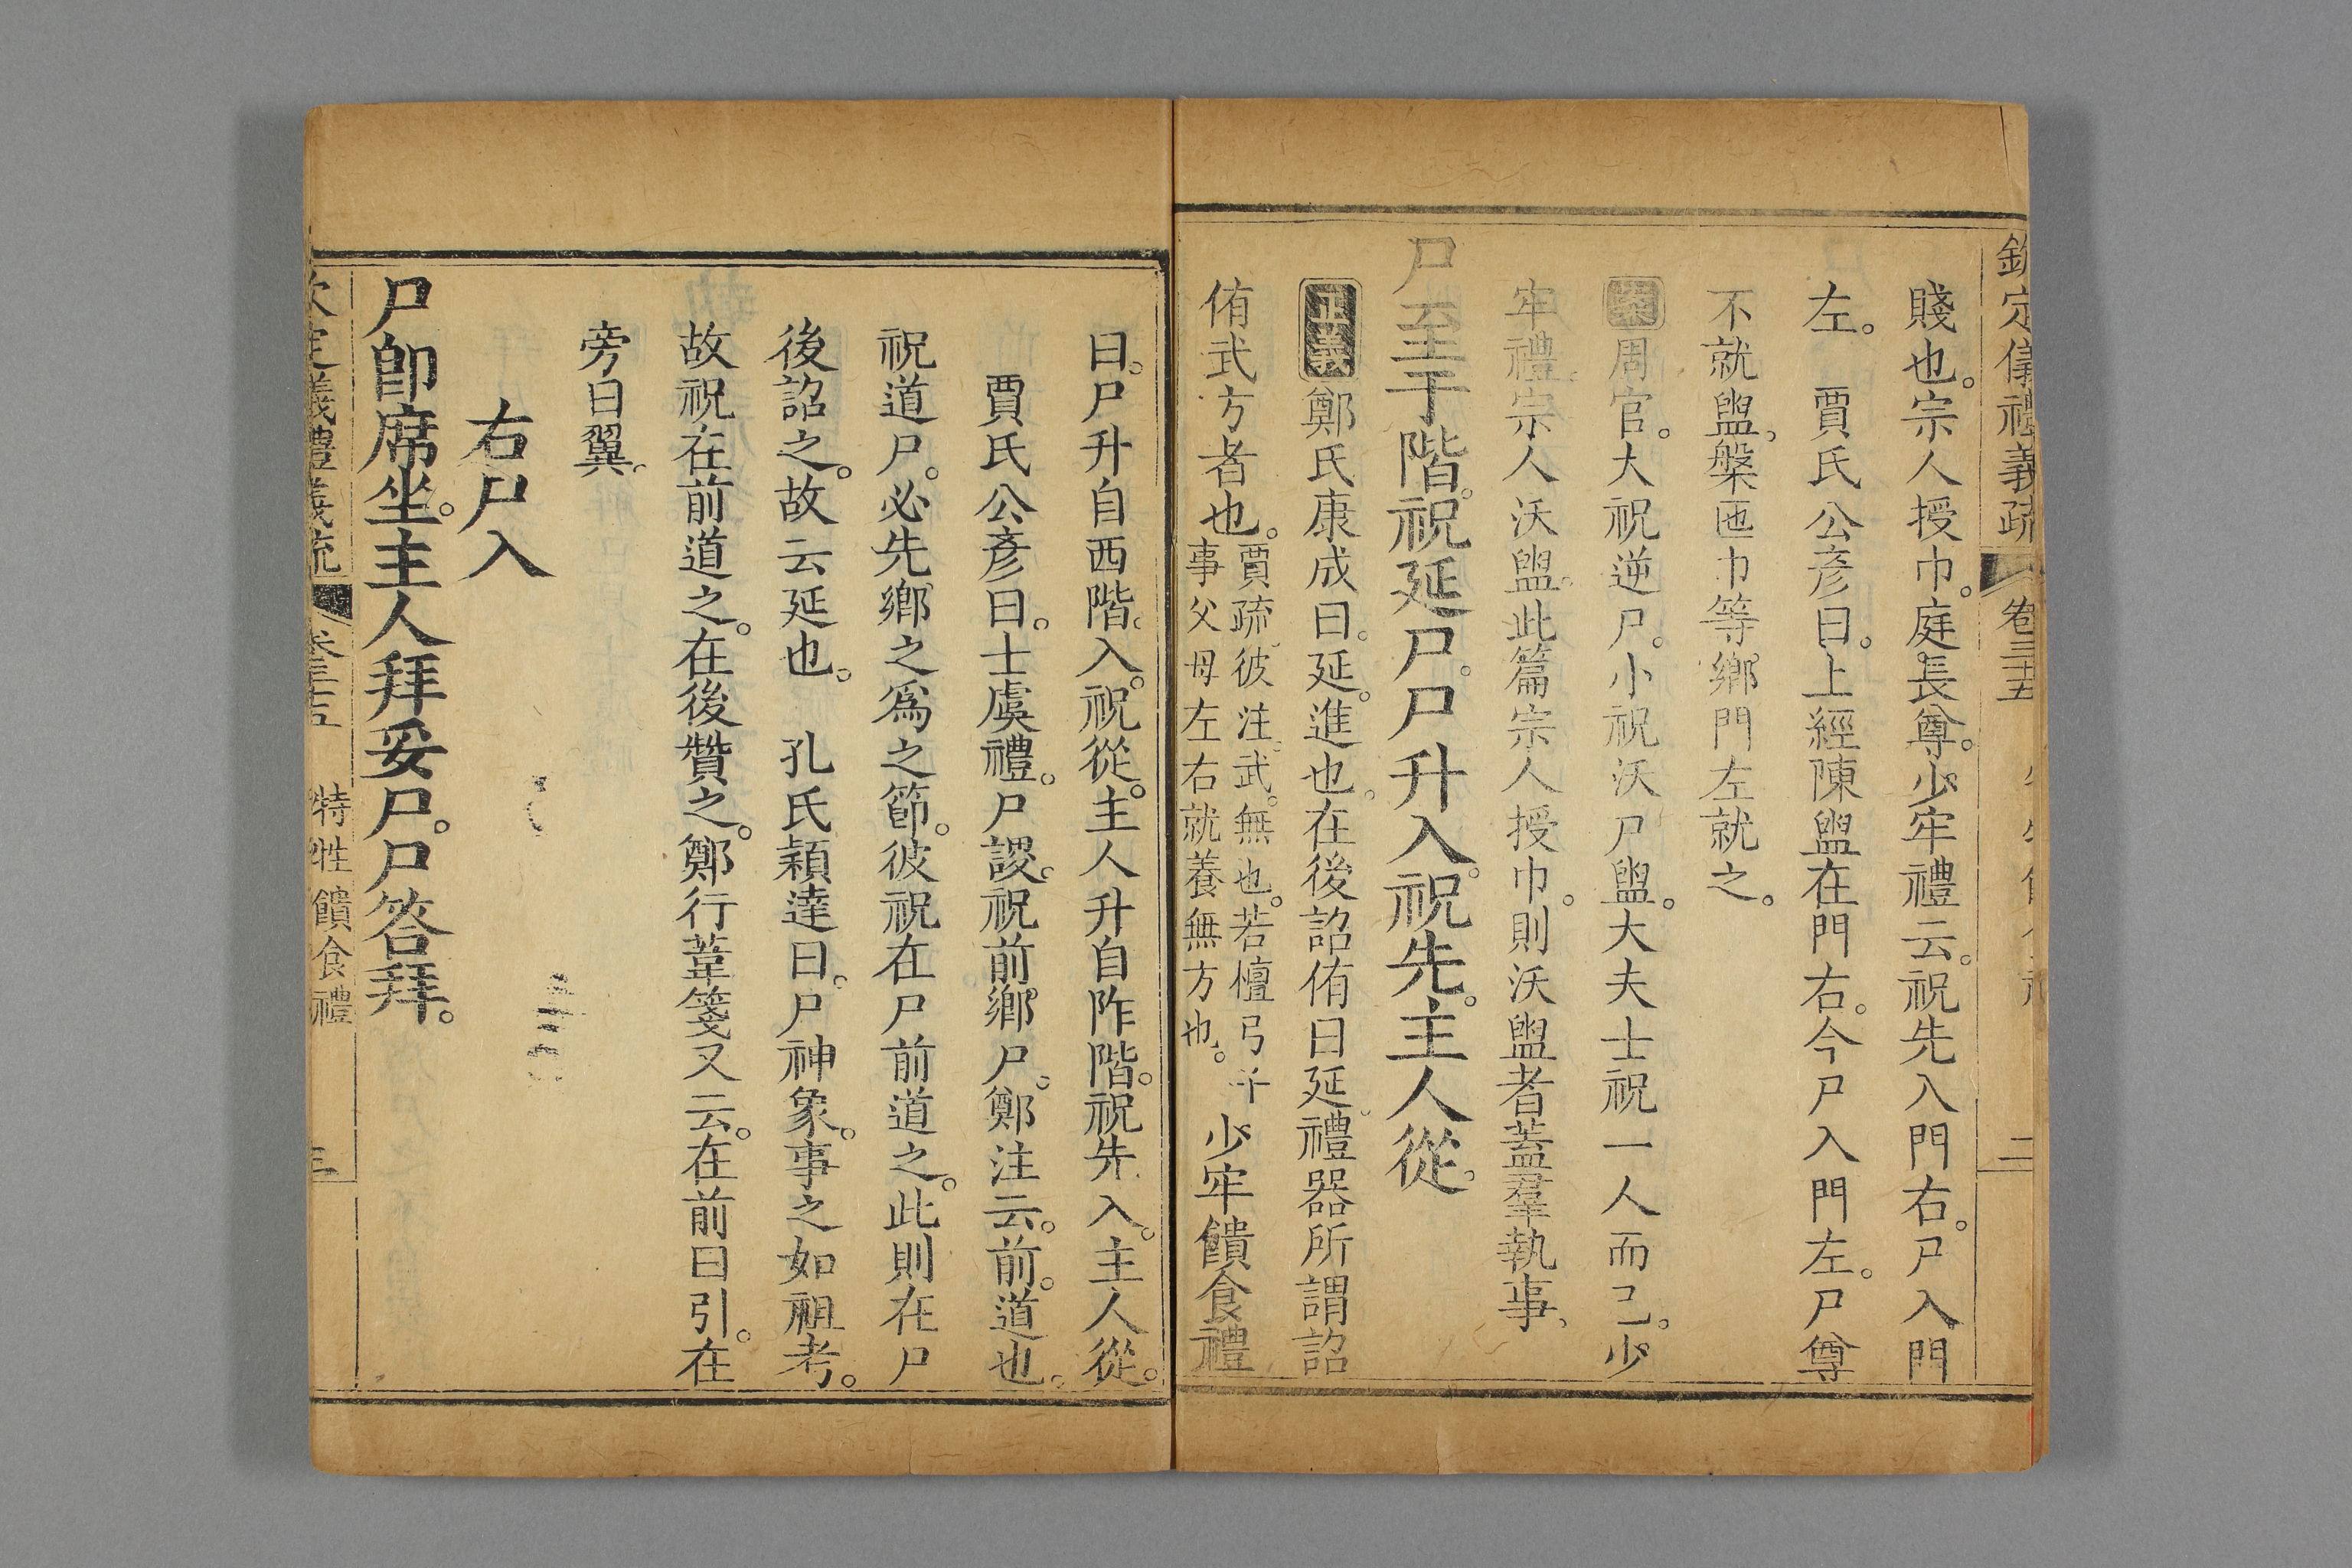 欽定儀禮義疏 卷三十五 二
賤也。宗人授巾。庭長尊。少牢禮云。祝先入門右。尸入門
左。 賈氏公彥曰。上經陳盥在門右。今尸入門左。尸尊
不就盥。槃匜巾等。鄉門左就之。
案周官。大祝逆尸。小祝沃尸盥。大夫士祝一人而己。少
牢禮。宗人沃盥。此篇宗人授巾。則沃盥者蓋羣執事。
尸至于階。祝延尸。尸升入。祝先。主人從。
正義鄭氏康成曰。延。進也。在後詔侑曰延。禮器所謂詔
侑武方者也。賈疏。彼注。武。無也。若檀弓
事父母左右就養無方也。少牢饋食禮
曰。尸升自西階。入。祝從。主人升自阼階。祝先入。主人從。
賈氏公彥曰。士虞禮。尸謖。祝前鄉尸。鄭注云。前。道也。
祝道尸。必先鄉之爲之節。彼祝在尸前道之。此則在尸
後詔之。故云延也。 孔氏穎達曰。尸神象。事之如祖考。
故祝在前道之。在後贊之。鄭行葦箋又云。在前曰引。在
旁曰翼。
右尸入
尸卽席坐。主人拜妥尸。尸答拜。
欽定儀禮義疏 卷三十五 特牲饋食禮 三